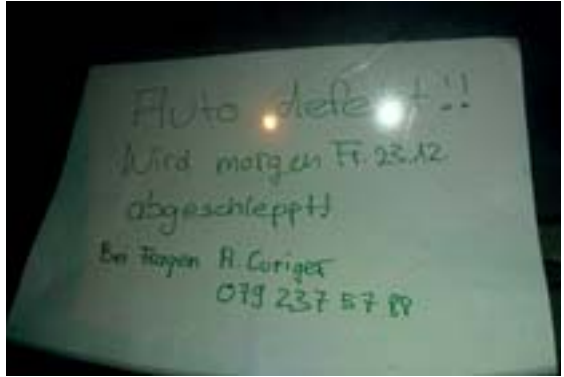 Auto defekt!!
Wird morgen Fr. 23.12
abgeschleppt!
Bei Fragen A. Curiger
079 237 57 88